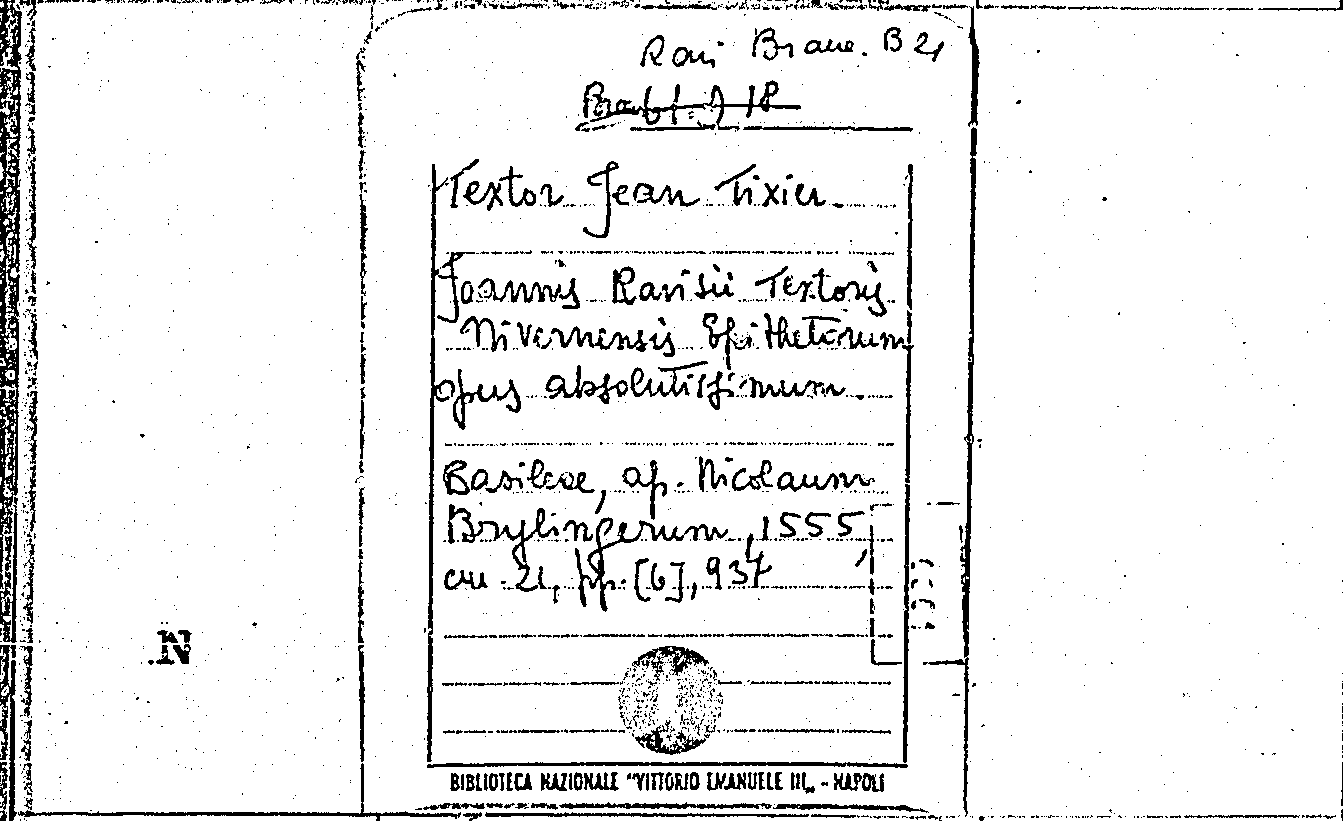 Rari Branc. B 21
18
Textor Jean Tixier.
Joannis Ravisii Textoris
Nivernensis Epithetorum
opus absolutissimum.
Basileae, ap. Nicolaum
Brylingerum, 1555,
cm. 21, pp. [6], 937
N
BIBLIOTECA NAZIONALE "VITTORIO EMANUELE III„ - NAPOLI